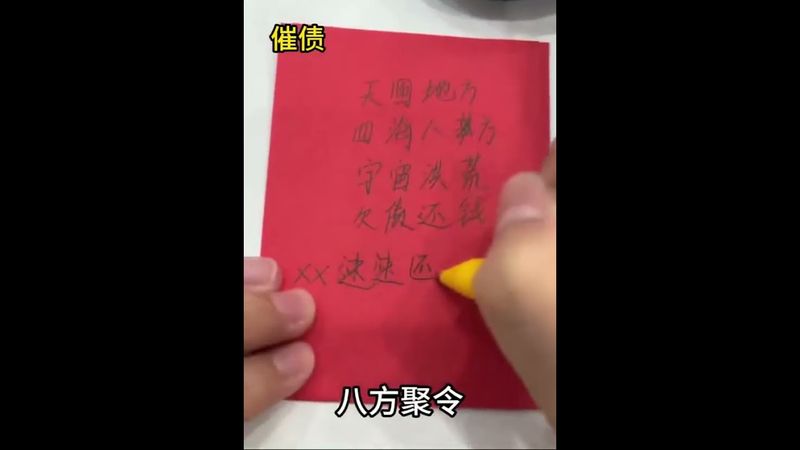 催债
天圆地方
四海八方
宇宙洪荒
欠债还钱
XX速速还
八方聚令